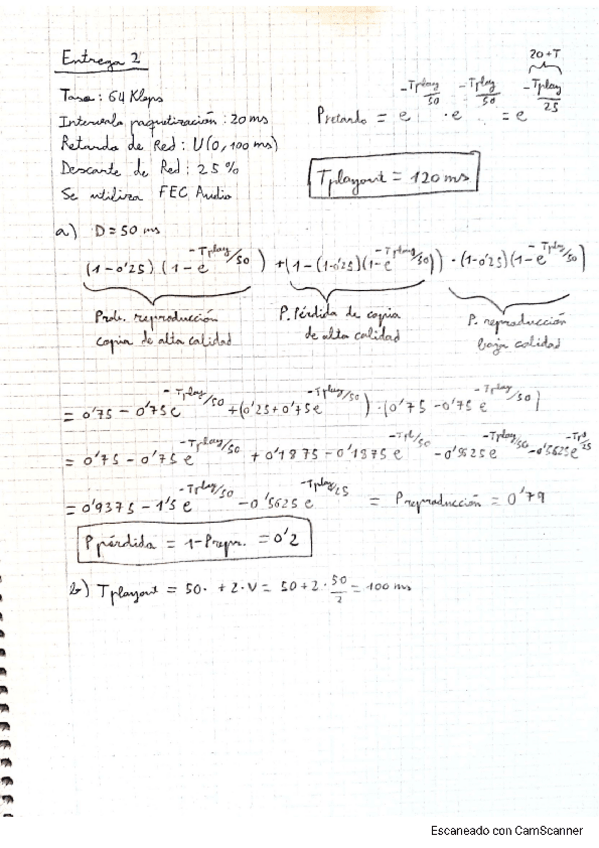 Entrega 2
Tasa: 64 Kbps
Intervalo paquetización: 20 ms
Retardo de Red: U(0, 100 ms)
Descarte de Red: 25 %
Se utiliza FEC Audio
20+T
Pretardo = e^(-Tplay/50) · e^(-Tplay/50) = e^(-Tplay/25)
Tplayout = 120 ms
a) D = 50 ms
(1-0'25) (1-e^(-Tplay/50)) + (1-(1-0'25)(1-e^(-Tplay/50))) · (1-0'25)(1-e^(-Tplay/50))
Prob. reproducción copia de alta calidad
P. Pérdida de copia de alta calidad
P. reproducción baja calidad
= 0'75 - 0'75e^(-Tplay/50) + (0'25+0'75e^(-Tplay/50)) · (0'75 - 0'75 e^(-Tplay/50))
= 0'75 - 0'75 e^(-Tplay/50) + 0'1875 - 0'1875 e^(-Tpl/50) - 0'5625 e^(-Tplay/50) - 0'5625e
= 0'9375 - 1'5 e^(-Tplay/50) - 0'5625 e^(-Tplay/25) = Preproducción = 0'79
P pérdida = 1-Prepr. = 0'2
b) Tplayout = 50· + 2·V = 50 + 2·50/2 = 100 ms
Escaneado con CamScanner